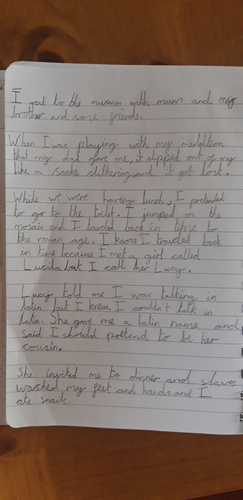 I went to the museum with mum and my
brother and some friends.
When I was playing with my medallion
that my dad gave me, it slipped out of my
like a snake slithering and it got lost.
While we were having lunch, I pretended
to go to the toilet. I jumped on the
mosaic and I traveled back in time to
the roman age. I know I traveled back
in time because I met a girl called
Lucilla but I call her Lucy.
Lucy told me I was talking in
latin but I knew I couldn't talk in
latin. She gave me a latin name and
said I should pretend to be her
cousin.
She invited me to dinner and slaves
washed my feet and hands and I
ate snails.